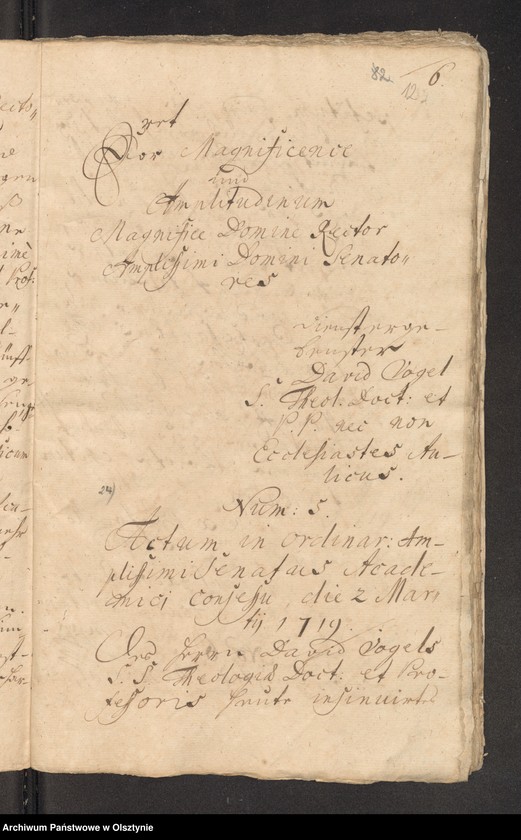 82
6.
12
Magnificence
und
Amplitudinum
Magnifice Domine Rector
Amplissimi Domini Senato„
res
dienst erge-
benster
David Vogel
S. Theol: Doct: et
P. P. nec non
Ecclesiastes Au-
licus.
24)
Num: 5.
Actum in ordinar: Am-
plissimi Senatus Acade-
mici Consessu, die 2 Mar
tij 1719.
Des Herrn David Vogels
S. S. Theologiae Doct: et Pro-
fessoris heute insinuirte
Archiwum Państwowe w Olsztynie